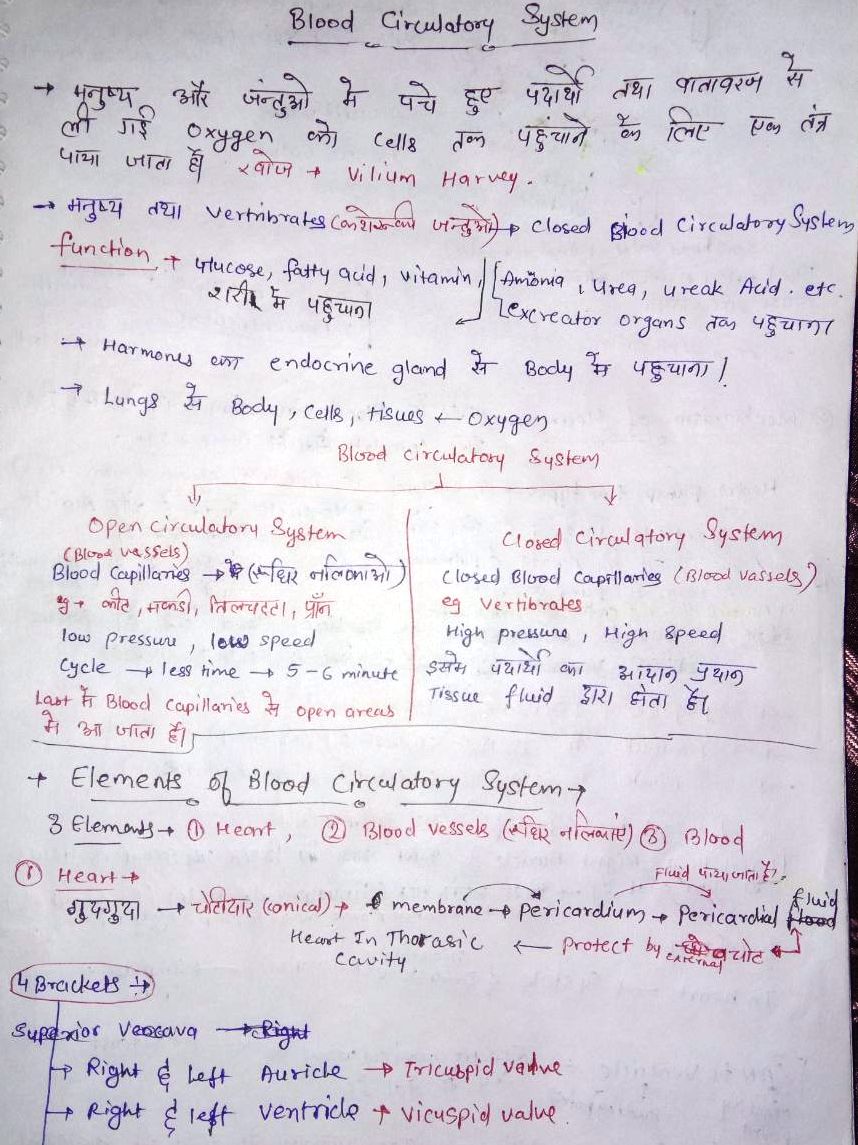 Blood Circulatory System
→ मनुष्य और जंन्तुओ मे पचे हुए पदार्थो तथा वातावरण से
ली गई oxygen को cells तक पहुंचाने के लिए एक तंत्र
पाया जाता है। खोज → Vilium Harvey.
→ मनुष्य तथा vertribrates (कशेरूकी जन्तुओ) → closed Blood Circulatory System
function → Glucose, fatty acid, vitamin, Amonia, Urea, ureak Acid. etc.
शरीर मे पहुचाना excreator organs तक पहुचाना
→ Harmones का endocrine gland से Body मे पहुचाना।
→ Lungs से Body, cells, tissues ← oxygen
Blood circulatory System
Open circulatory System
(Blood vessels)
Blood Capillaries → (रूधिर नलिकाओ)
eg → कीट, मकडी, तिलचट्टा, प्रॉन
low pressure, low speed
Cycle → less time → 5-6 minute
Last मे Blood Capillaries से open areas
मे आ जाता है।
Closed Circulatory System
Closed Blood Capillaries (Blood vassels)
eg vertibrates
High pressure, High speed
इसमे पदार्थो का आदान प्रदान
Tissue fluid द्वारा होता है।
→ Elements of Blood Circulatory System →
3 Elements → ① Heart, ② Blood vessels (रूधिर नलिकाएं) ③ Blood
① Heart → Fluid पाया जाता है।
गुदगुदा → चोटीदार (conical) → membrane → Pericardium → Pericardial fluid
Heart In Thorasic ← Protect by external चोट
Cavity.
4 Brackets →
Superior Venacava → Right
→ Right & left Auricle → Tricuspid valve
→ Right & left ventricle → vicuspid valve.